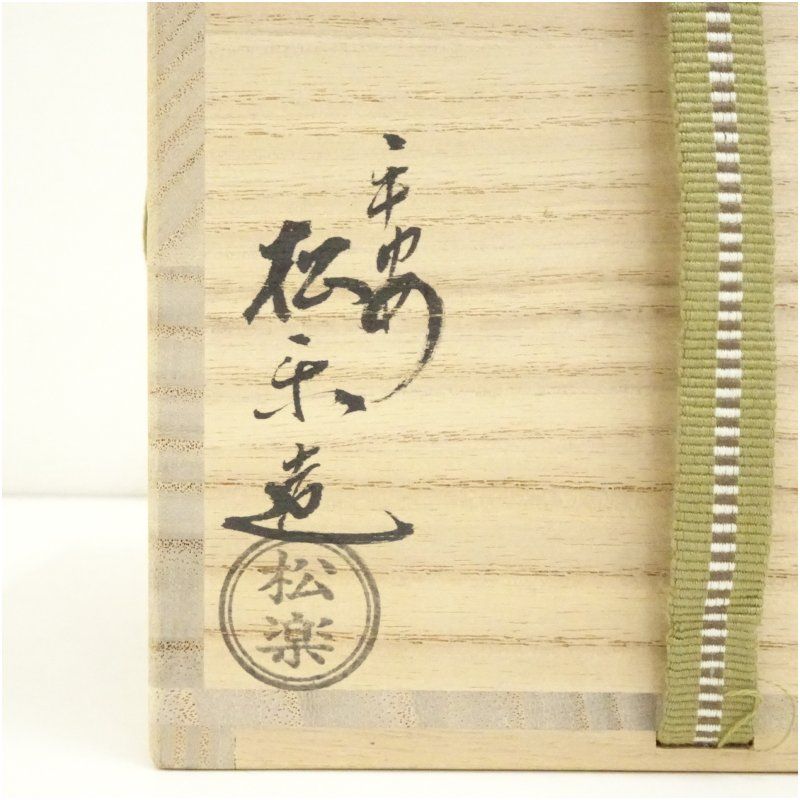 平安
松楽造
松楽